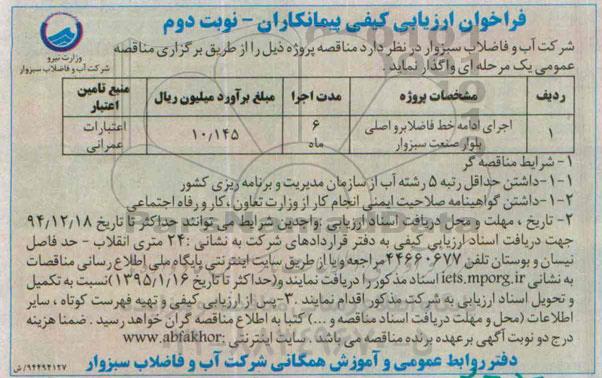 فراخوان ارزیابی کیفی پیمانکاران - نوبت دوم
وزارت نیرو
شرکت آب و فاضلاب سبزوار
شرکت آب و فاضلاب سبزوار در نظر دارد مناقصه پروژه ذیل را از طریق برگزاری مناقصه
عمومی یک مرحله ای واگذار نماید .
ردیف مشخصات پروژه مدت اجرا مبلغ برآورد میلیون ریال منبع تامین اعتبار
۱ اجرای ادامه خط فاضلابرو اصلی بلوار صنعت سبزوار ۶ ماه ۱۰/۱۴۵ اعتبارات عمرانی
۱- شرایط مناقصه گر
۱-۱-داشتن حداقل رتبه ۵ رشته آب از سازمان مدیریت و برنامه ریزی کشور
۱-۲-داشتن گواهینامه صلاحیت ایمنی انجام کار از وزارت تعاون ،کار و رفاه اجتماعی
۲- تاریخ ، مهلت و محل دریافت اسناد ارزیابی :واجدین شرایط می توانند حداکثر تا تاریخ ۹۴/۱۲/۱۸
جهت دریافت اسناد ارزیابی کیفی به دفتر قراردادهای شرکت به نشانی :۲۴ متری انقلاب - حد فاصل
نیسان و بوستان تلفن ۴۴۶۶۰۶۷۷مراجعه و یا از طریق سایت اینترنتی پایگاه ملی اطلاع رسانی مناقصات
به نشانی iets.mporg.ir اسناد مذکور را دریافت نمایند و(حداکثر تا تاریخ ۱۳۹۵/۱/۱۶)نسبت به تکمیل
و تحویل اسناد ارزیابی به شرکت مذکور اقدام نمایند .۳-پس از ارزیابی کیفی و تهیه فهرست کوتاه ، سایر
اطلاعات (محل و مهلت دریافت اسناد مناقصه و ...) کتبا به اطلاع مناقصه گران خواهد رسید . ضمنا هزینه
درج دو نوبت آگهی برعهده برنده مناقصه می باشد . سایت اینترنتی :www.abfakhor
دفتر روابط عمومی و آموزش همگانی شرکت آب و فاضلاب سبزوار
۹۴۴۹۴۱۲۷/ش